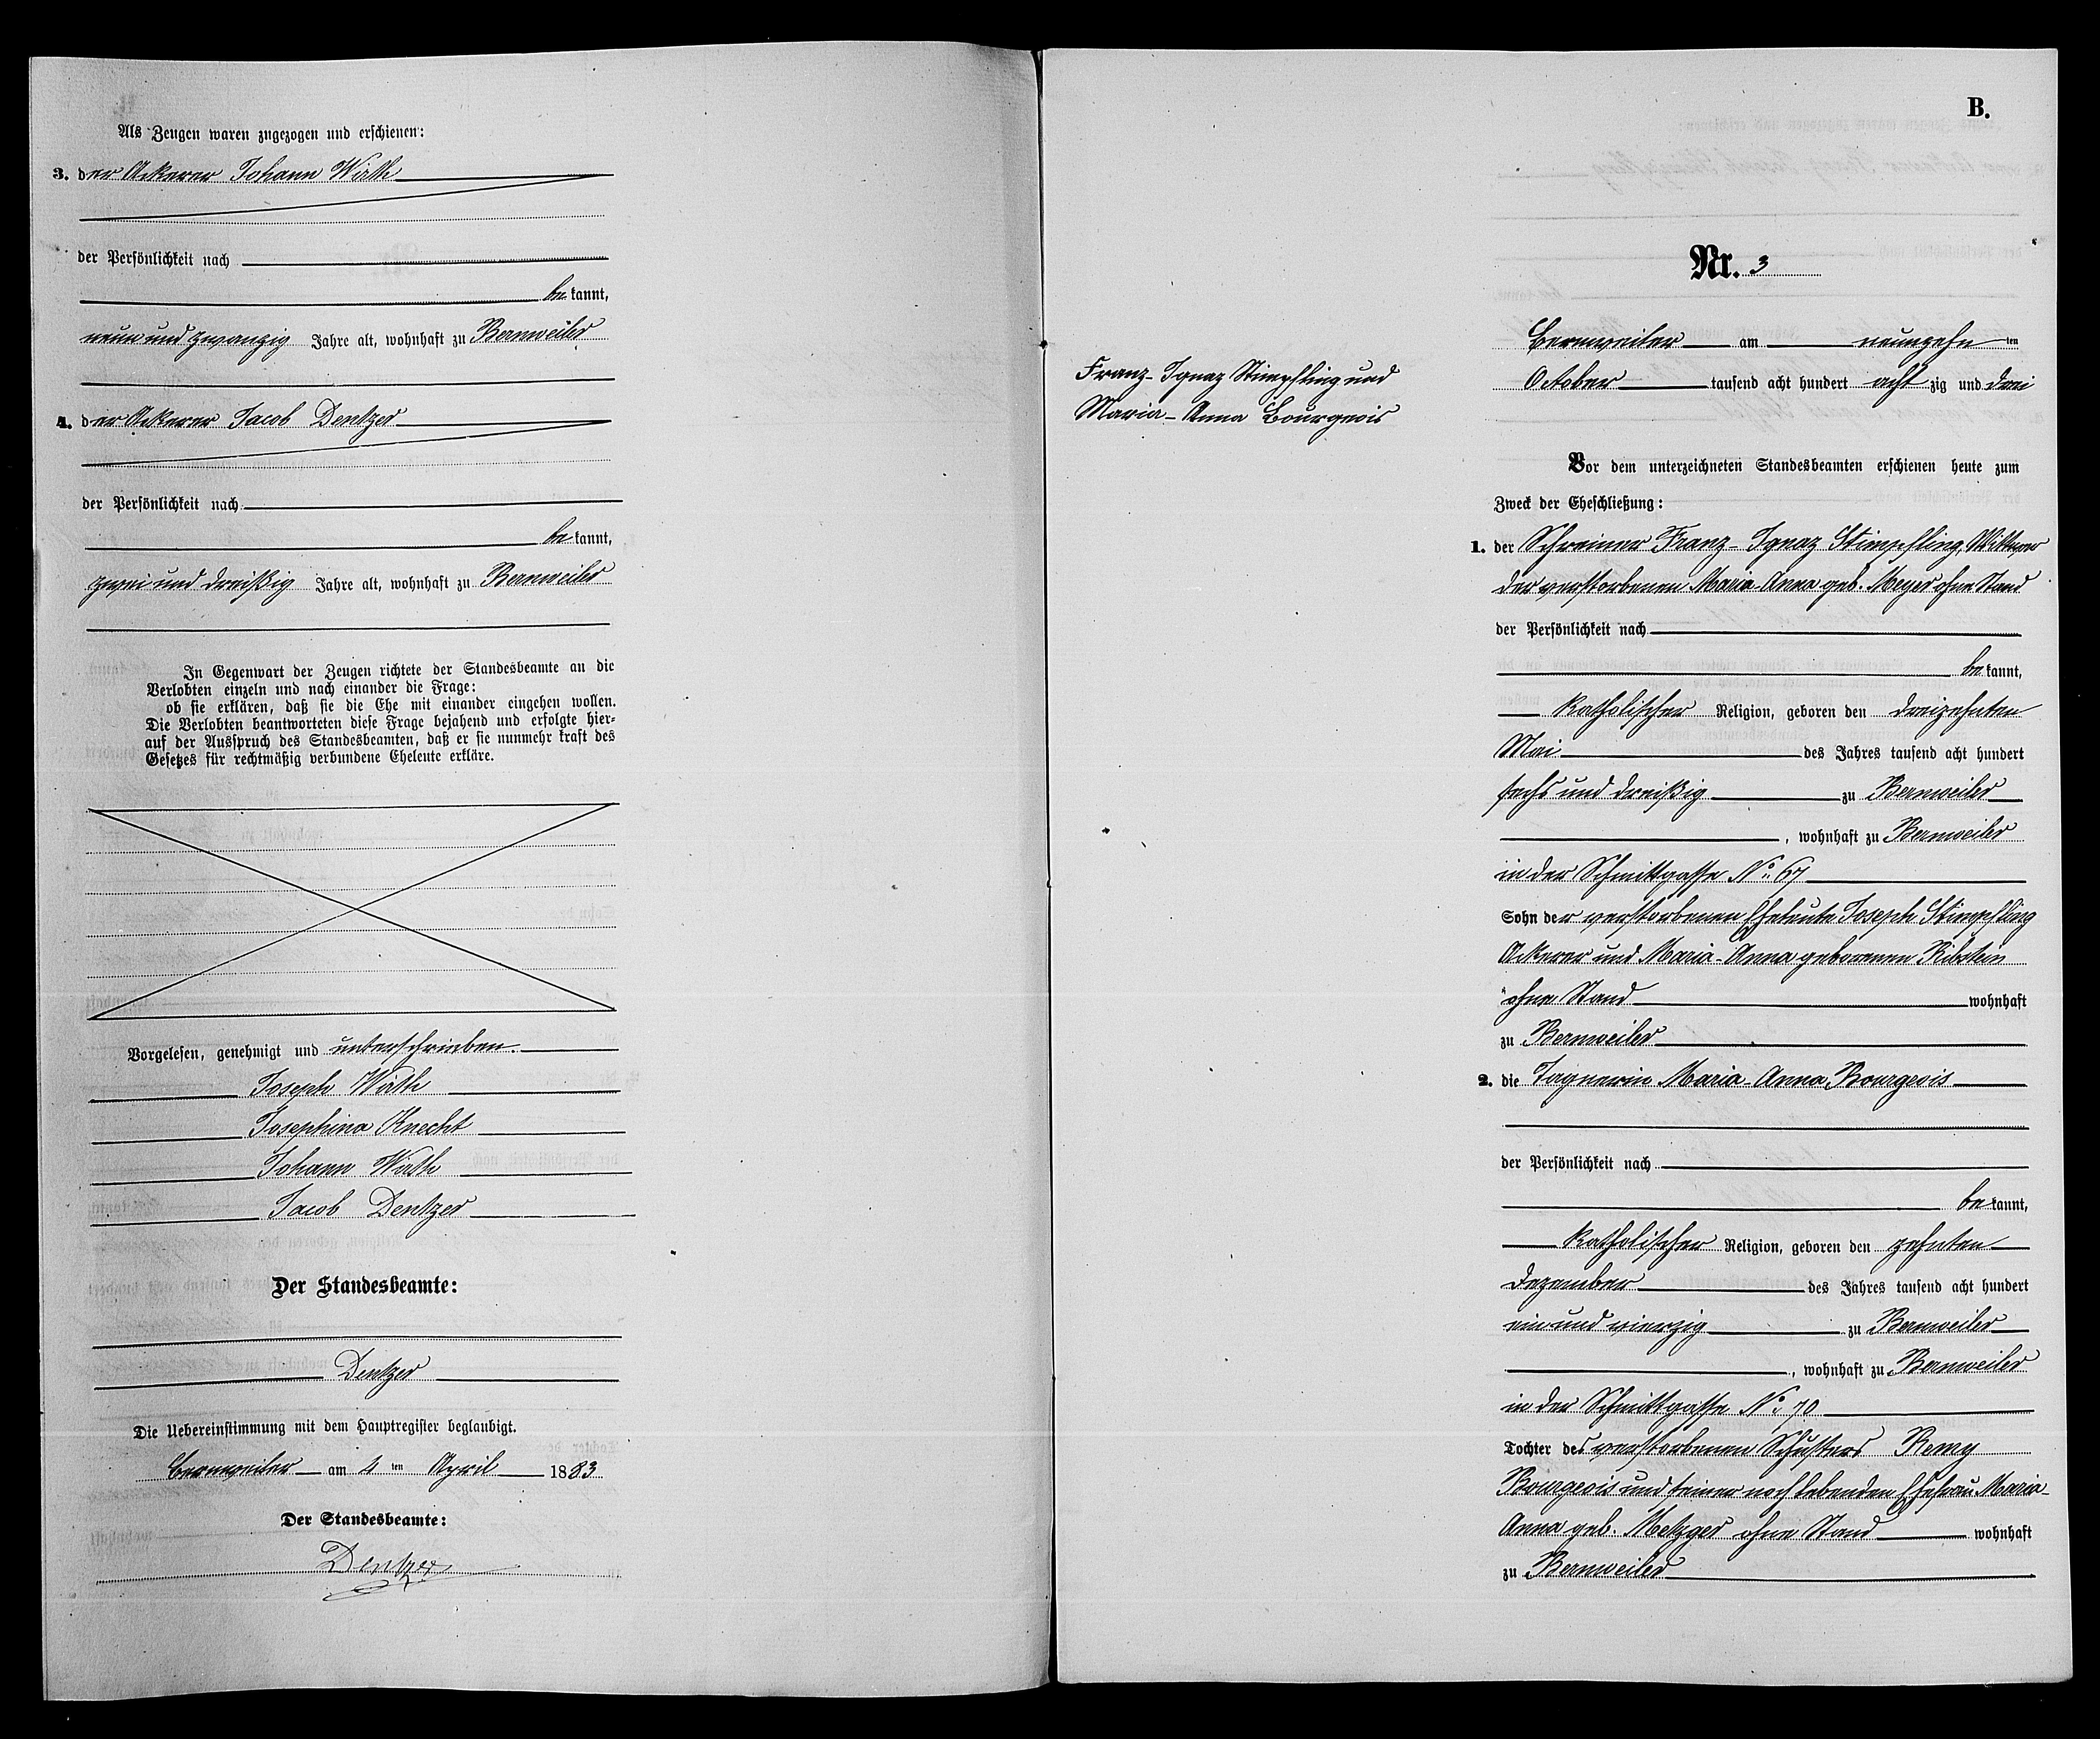 Als Zeugen waren zugezogen und erschienen:
3. der Ackerer Johann Wirth
der Persönlichkeit nach
bekannt,
neun und zwanzig Jahre alt, wohnhaft zu Bernweiler
4. der Ackerer Jacob Dentzer
der Persönlichkeit nach
bekannt,
zwei und dreißig Jahre alt, wohnhaft zu Bernweiler
In Gegenwart der Zeugen richtete der Standesbeamte an die
Verlobten einzeln und nach einander die Frage:
ob sie erklären, daß sie die Ehe mit einander eingehen wollen.
Die Verlobten beantworteten diese Frage bejahend und erfolgte hier-
auf der Ausspruch des Standesbeamten, daß er sie nunmehr kraft des
Gesetzes für rechtmäßig verbundene Eheleute erkläre.
Vorgelesen, genehmigt und unterschrieben.
Joseph Wirth
Josephina Knecht
Johann Wirth
Jacob Dentzer
Der Standesbeamte:
Dentzer
Die Uebereinstimmung mit dem Hauptregister beglaubigt.
Bernweiler am 4 ten April 1883
Der Standesbeamte:
Dentzer
B.
Nr. 3
Bernweiler am neunzehn ten
October tausend acht hundert acht zig und drei
Franz-Ignaz Stimpfling und
Maria-Anna Bourgeois
Vor dem unterzeichneten Standesbeamten erschienen heute zum
Zweck der Eheschließung:
1. der Schreiner Franz-Ignaz Stimpfling, Wittwer
der verstorbenen Maria-Anna geb. Meyer ohne Stand
der Persönlichkeit nach
bekannt,
katholischer Religion, geboren den dreizehnten
Mai des Jahres tausend acht hundert
sechs und dreißig zu Bernweiler
, wohnhaft zu Bernweiler
in der Schmittgasse No. 67
Sohn der verstorbenen Eheleute Joseph Stimpfling
Ackerer und Maria-Anna geborenen Ribstein
ohne Stand wohnhaft
zu Bernweiler
2. die Tagnerin Maria-Anna Bourgeois
der Persönlichkeit nach
bekannt,
katholischer Religion, geboren den zehnten
Dezember des Jahres tausend acht hundert
ein und vierzig zu Bernweiler
, wohnhaft zu Bernweiler
in der Schmittgasse No. 70
Tochter des verstorbenen Schusters Remy
Bourgeois und seiner noch lebenden Ehefrau Maria-
Anna geb. Metzger ohne Stand wohnhaft
zu Bernweiler